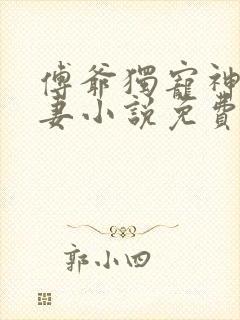 傅爺獨寵神
妻小說免費
郭小四